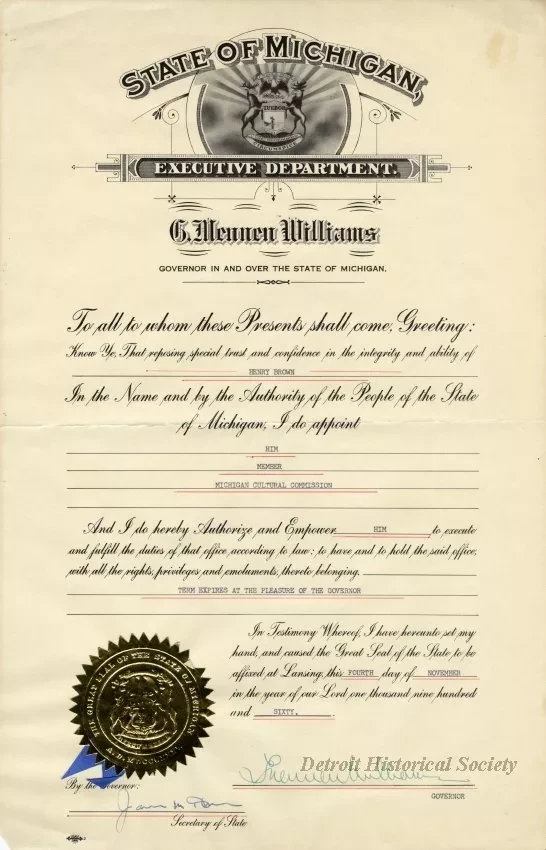 STATE OF MICHIGAN,
TUEBOR
CIRCUMSPICE
EXECUTIVE DEPARTMENT.
G. Mennen Williams
GOVERNOR IN AND OVER THE STATE OF MICHIGAN.
To all to whom these Presents shall come, Greeting:
Know Ye, That reposing special trust and confidence in the integrity and ability of
HENRY BROWN
In the Name and by the Authority of the People of the State
of Michigan, I do appoint
HIM
MEMBER
MICHIGAN CULTURAL COMMISSION
And I do hereby Authorize and Empower HIM to execute
and fulfill the duties of that office, according to law; to have and to hold the said office,
with all the rights, privileges and emoluments, thereto belonging.
TERM EXPIRES AT THE PLEASURE OF THE GOVERNOR
In Testimony Whereof, I have hereunto set my
hand, and caused the Great Seal of the State to be
affixed at Lansing, this FOURTH day of NOVEMBER
in the year of our Lord one thousand nine hundred
and SIXTY.
THE GREAT SEAL OF THE STATE OF MICHIGAN
Detroit Historical Society
By the Governor:
GOVERNOR
Secretary of State